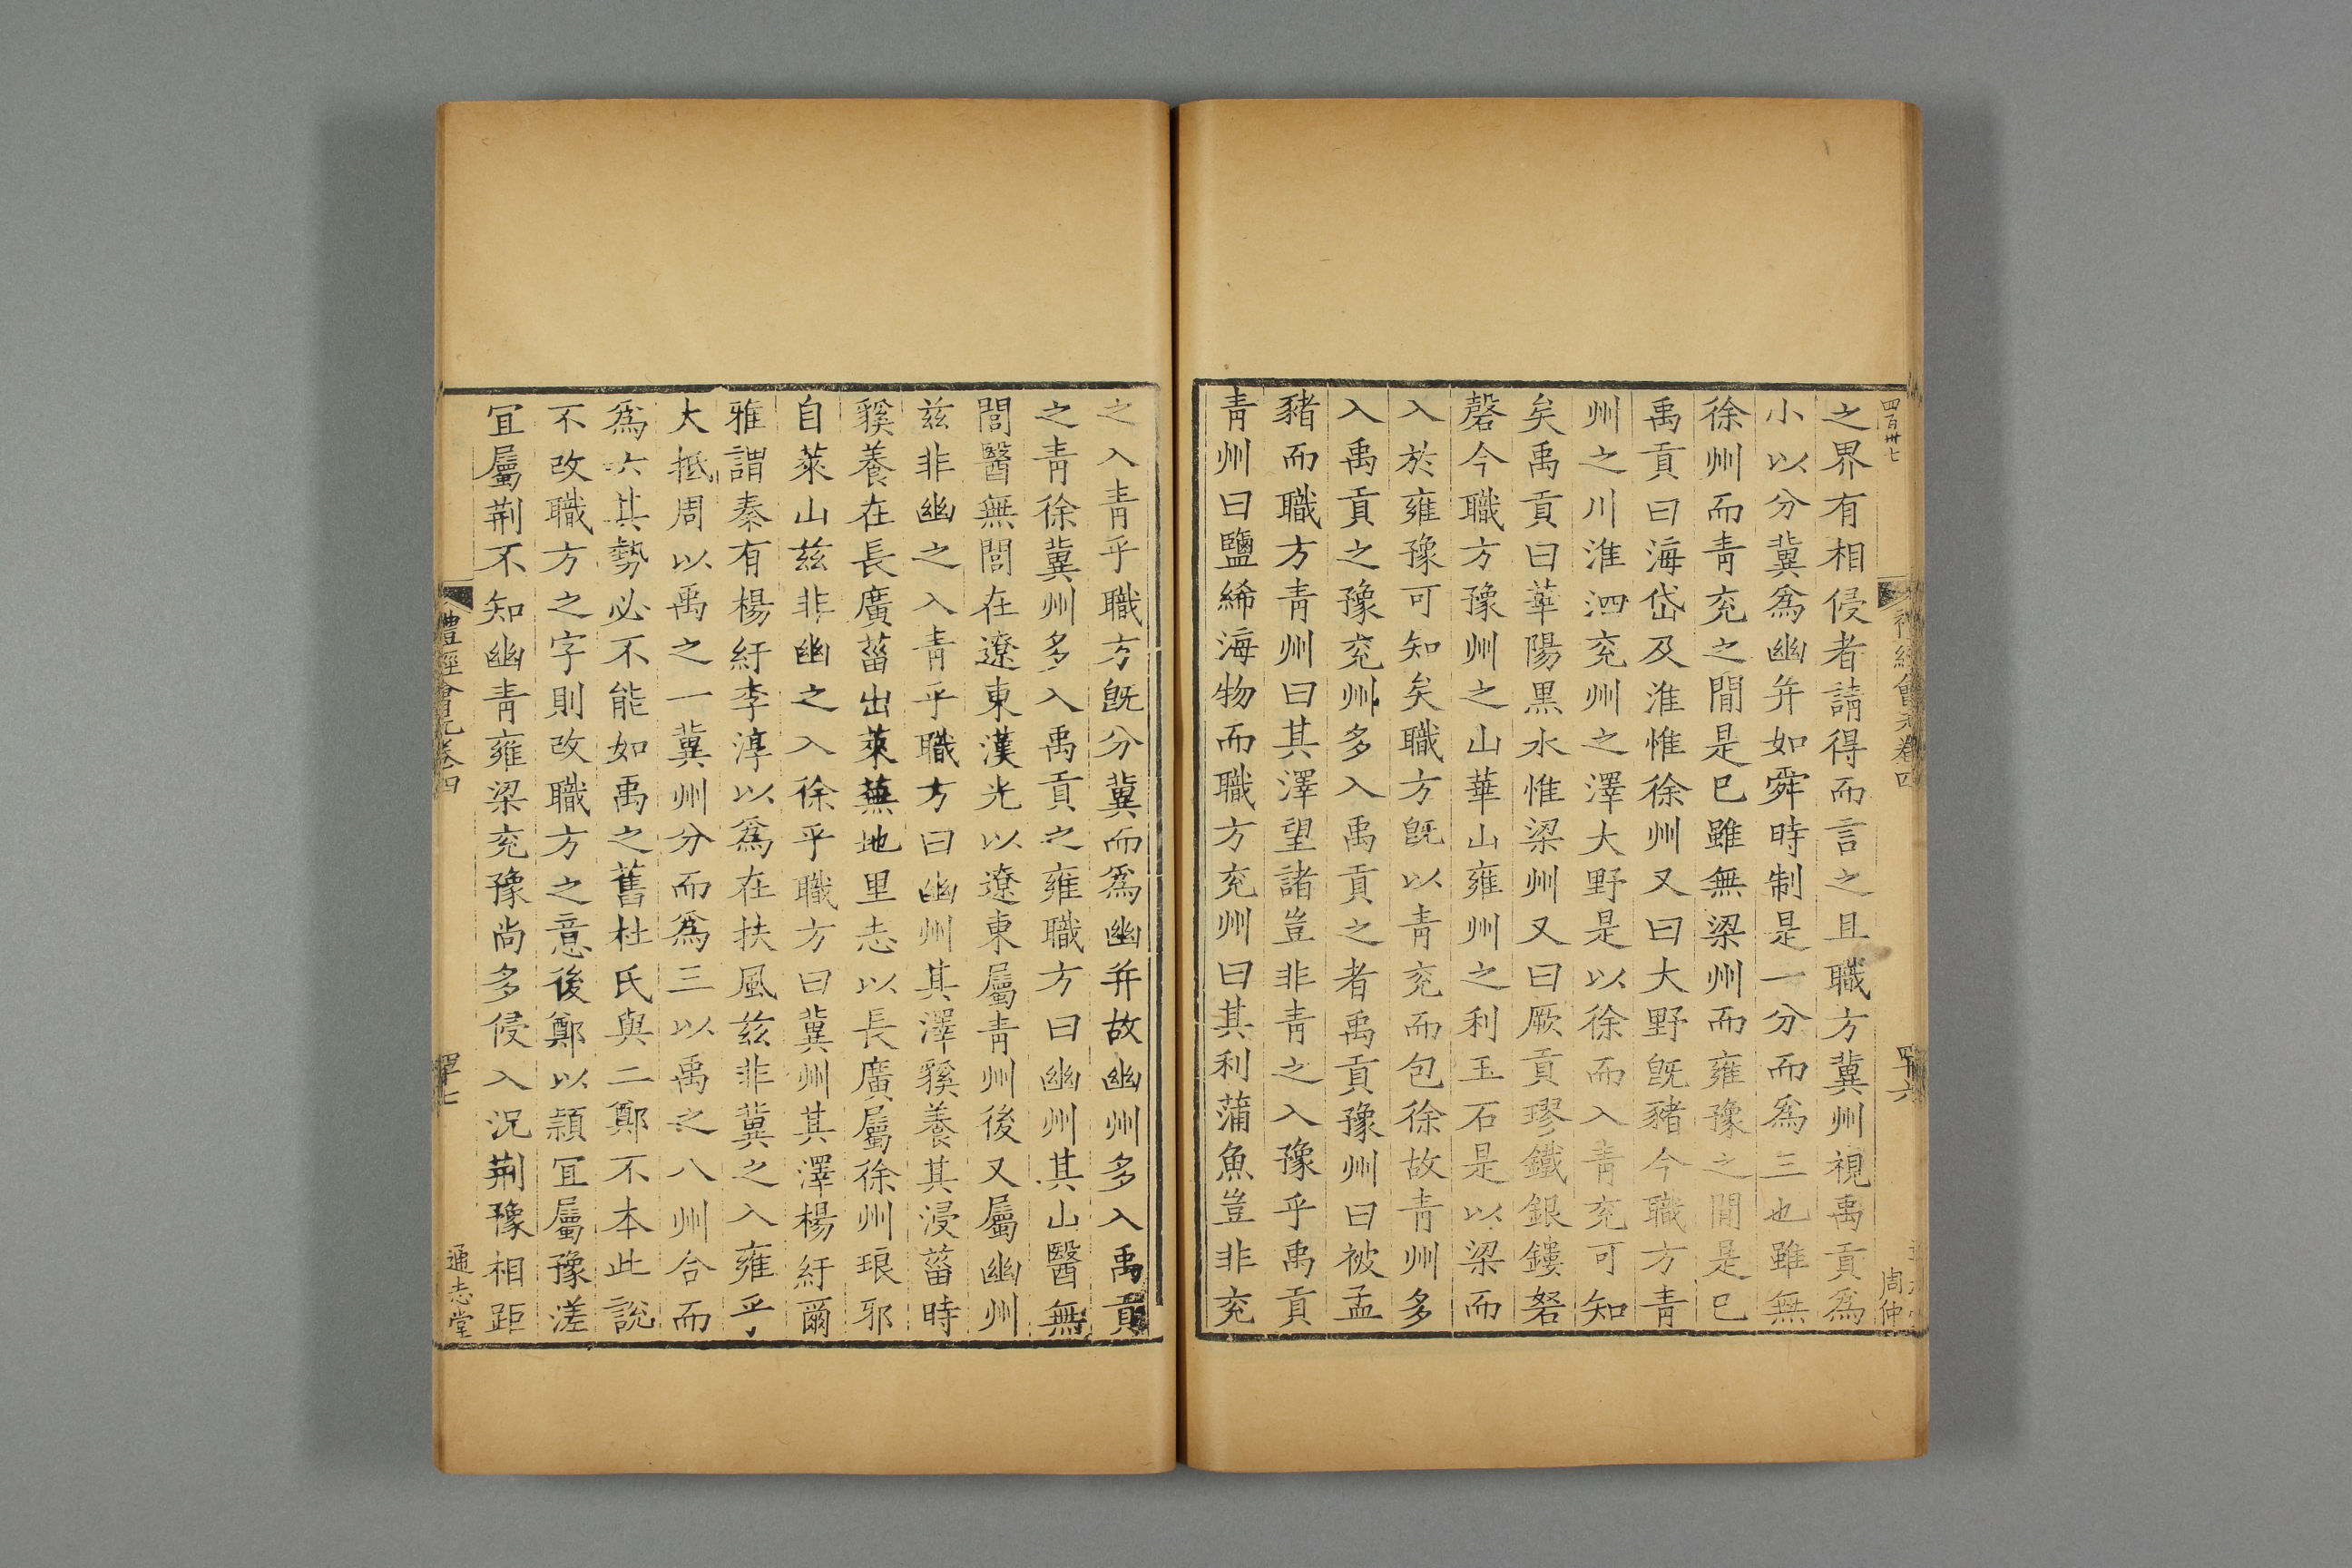 四百卅七
禮經會元卷四
四十六
周仲
之界有相侵者請得而言之且職方冀州視禹貢爲
小以分冀爲幽并如舜時制是一分而爲三也雖無
徐州而青兖之間是巳雖無梁州而雍豫之間是巳
禹貢曰海岱及淮惟徐州又曰大野旣豬今職方青
州之川淮泗兖州之澤大野是以徐而入青兖可知
矣禹貢曰華陽黒水惟梁州又曰厥貢璆鐵銀鏤砮
磬今職方豫州之山華山雍州之利玉石是以梁而
入於雍豫可知矣職方旣以青兖而包徐故青州多
入禹貢之豫兖州多入禹貢之者禹貢豫州曰被孟
豬而職方青州曰其澤望諸豈非青之入豫乎禹貢
青州曰鹽絺海物而職方兖州曰其利蒲魚豈非兖
之入青乎職方旣分冀而爲幽并故幽州多入禹貢
之青徐冀州多入禹貢之雍職方曰幽州其山醫無
閭醫無閭在遼東漢光以遼東屬青州後又屬幽州
兹非幽之入青乎職方曰幽州其澤貕養其浸菑時
貕養在長廣菑出萊蕪地里志以長廣屬徐州琅邪
自萊山兹非幽之入徐乎職方曰冀州其澤楊紆爾
雅謂秦有楊紆李淳以爲在扶風兹非冀之入雍乎
大抵周以禹之一冀州分而爲三以禹之八州合而
爲六其勢必不能如禹之舊杜氏與二鄭不本此說
不攻職方之字則改職方之意後鄭以潁冝屬豫溠
冝屬荆不知幽青雍梁兖豫尚多侵入况荆豫相距
禮經會元卷四
四十七
通志堂